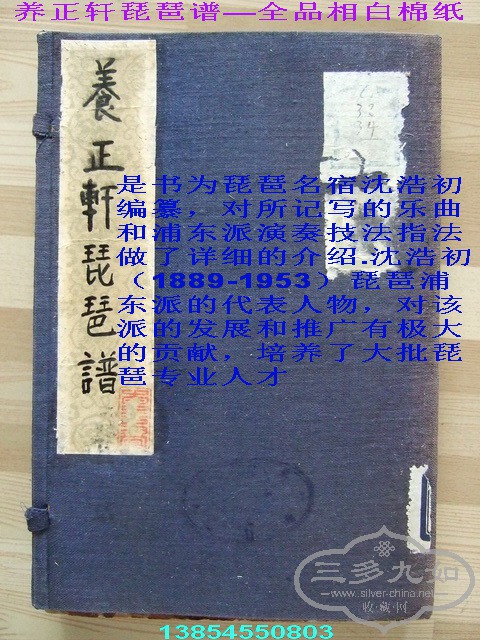 养正轩琵琶谱—全品相白棉纸
養正軒琵琶譜
是书为琵琶名宿沈浩初
编纂，对所记写的乐曲
和浦东派演奏技法指法
做了详细的介绍.沈浩初
（1889-1953）琵琶浦
东派的代表人物，对该
派的发展和推广有极大
的贡献，培养了大批琵
琶专业人才
三多九如
www.silver-china.net
收藏网
13854550803